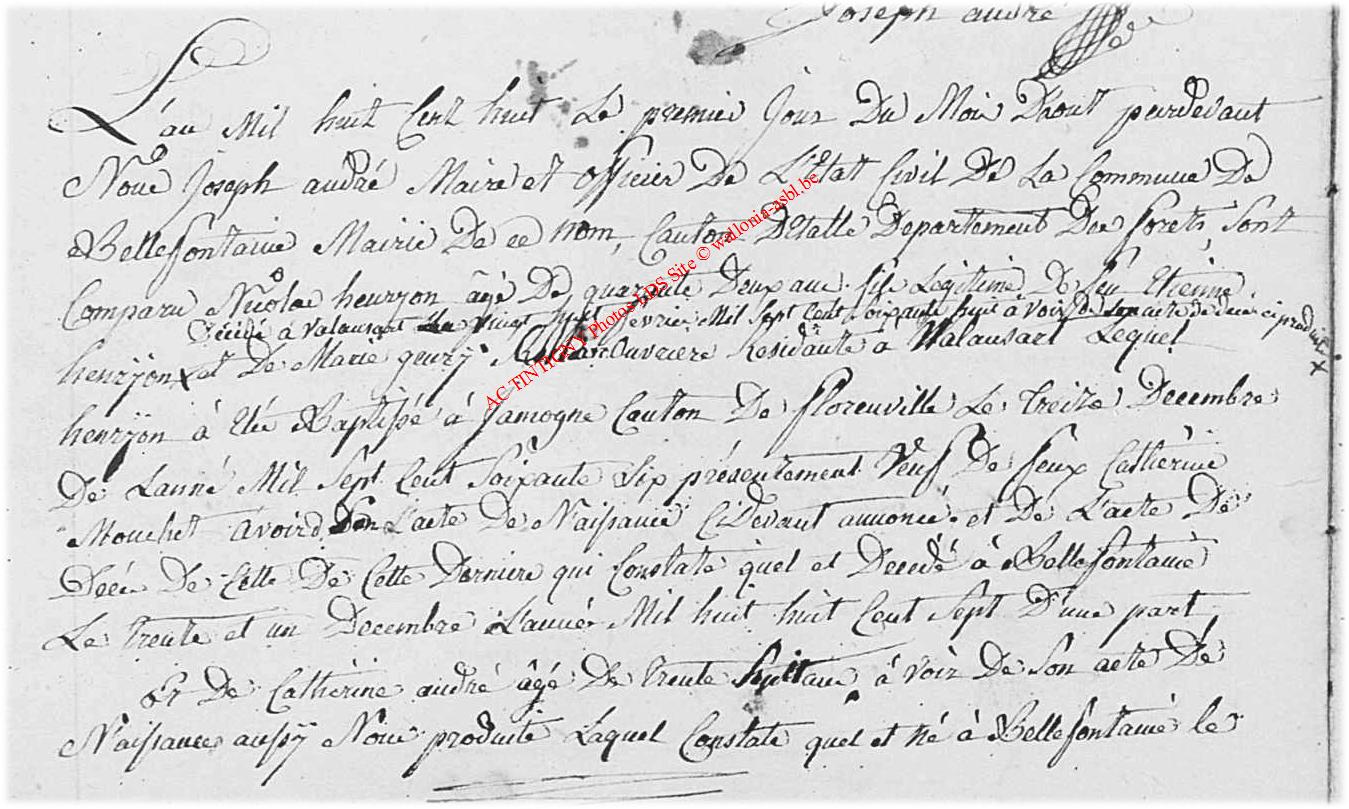 Joseph andré
L'an Mil huit Cent huit Le premier Jour Du Mois Daout pardevant
Nous Joseph andré Maire et officier De L'Etat Civil De La Commune De
Bellefontaine Mairie De ce nom, Canton D'Etalle Departement Des forets, sont
Comparu Nicolas henryon âgé De quarante Deux ans fils Legitime De feu Etienne
Décédé à Valansart Le vingt huit fevrier Mil Sept Cent Soixante huit à voir de son acte de deces ci produit x
henrÿon x et De Marie genrÿ Ouvriere Residante a Valansart Lequel
henrÿon à Eté Baptissé à Jamogne Canton De florenville Le Treize Decembre
De Lanné Mil Sept Cent Soixante Six présentement Veuf De feux Catherine
Mouchet avoird Son L'acte De Naissance Cidevant annoncé et De L'acte De
Décès De Cette De Cette Derniere qui Constate quel et Decédé à Bellefontaine
Le Trente et un Decembre L'année Mil huit huit Cent Sept D'une part
Et De Catherine andré âgé De Trente Sept ans à voir De Son acte De
Naissance aussÿ Nous produite Laquel Constate quel et né à Bellefontaine le
AC TINTIGNY Photos LDS Site © wallonia-asbl.be